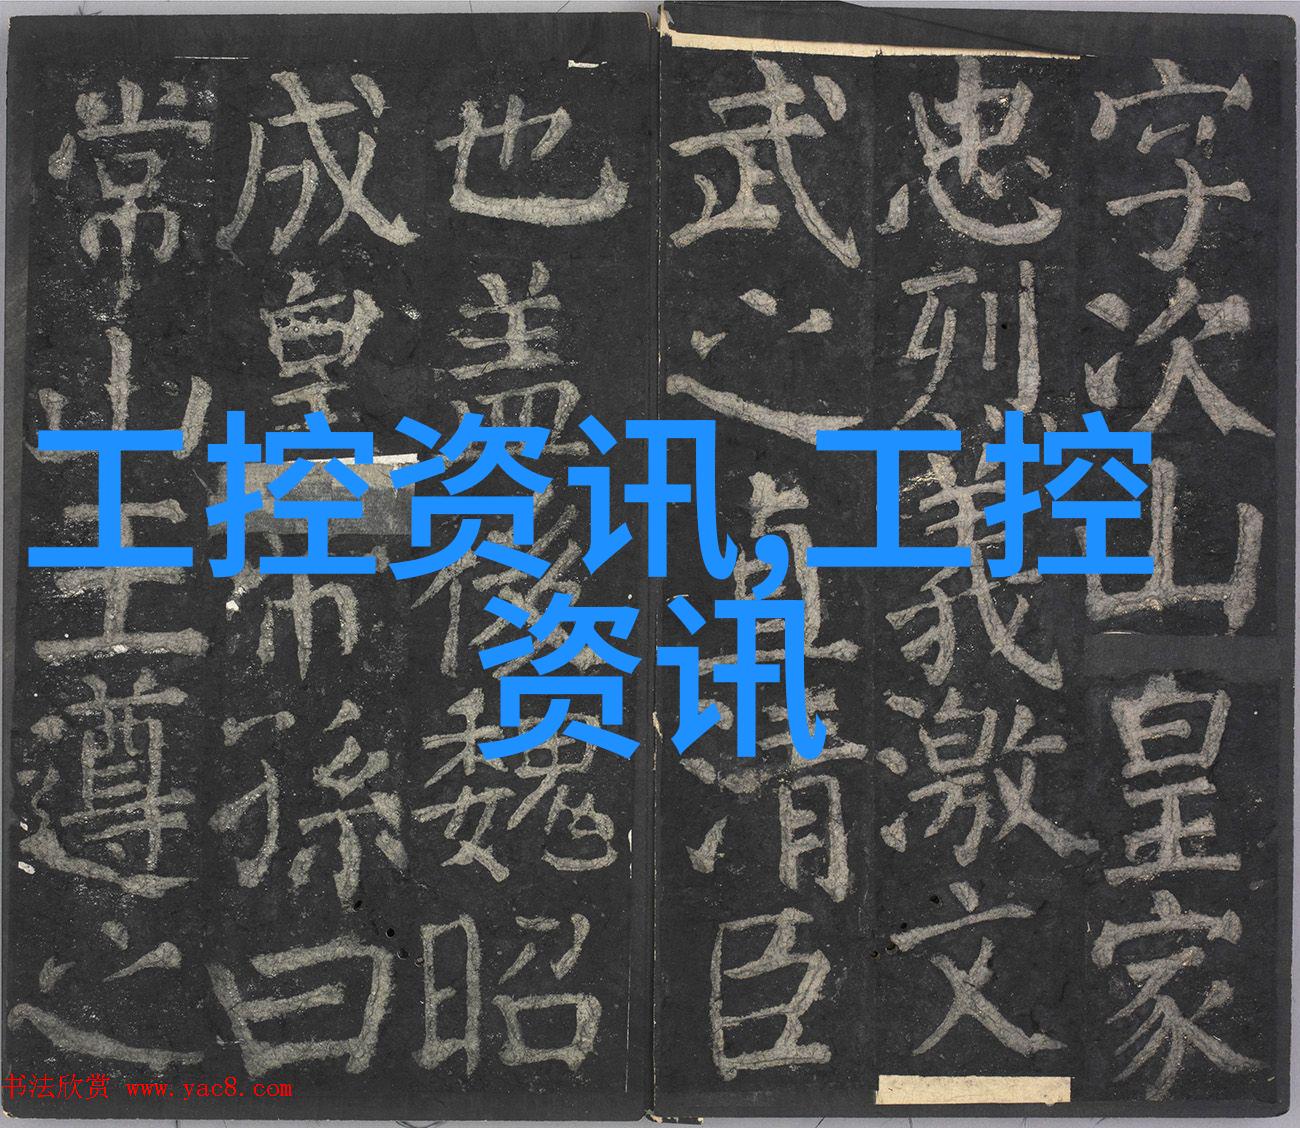 字次山皇家
忠烈義激文
武之直清臣
也盖後魏昭
成皇帝孫曰
常山王遵之
工控资讯,工控
资讯
书法欣赏 www.yac8.com